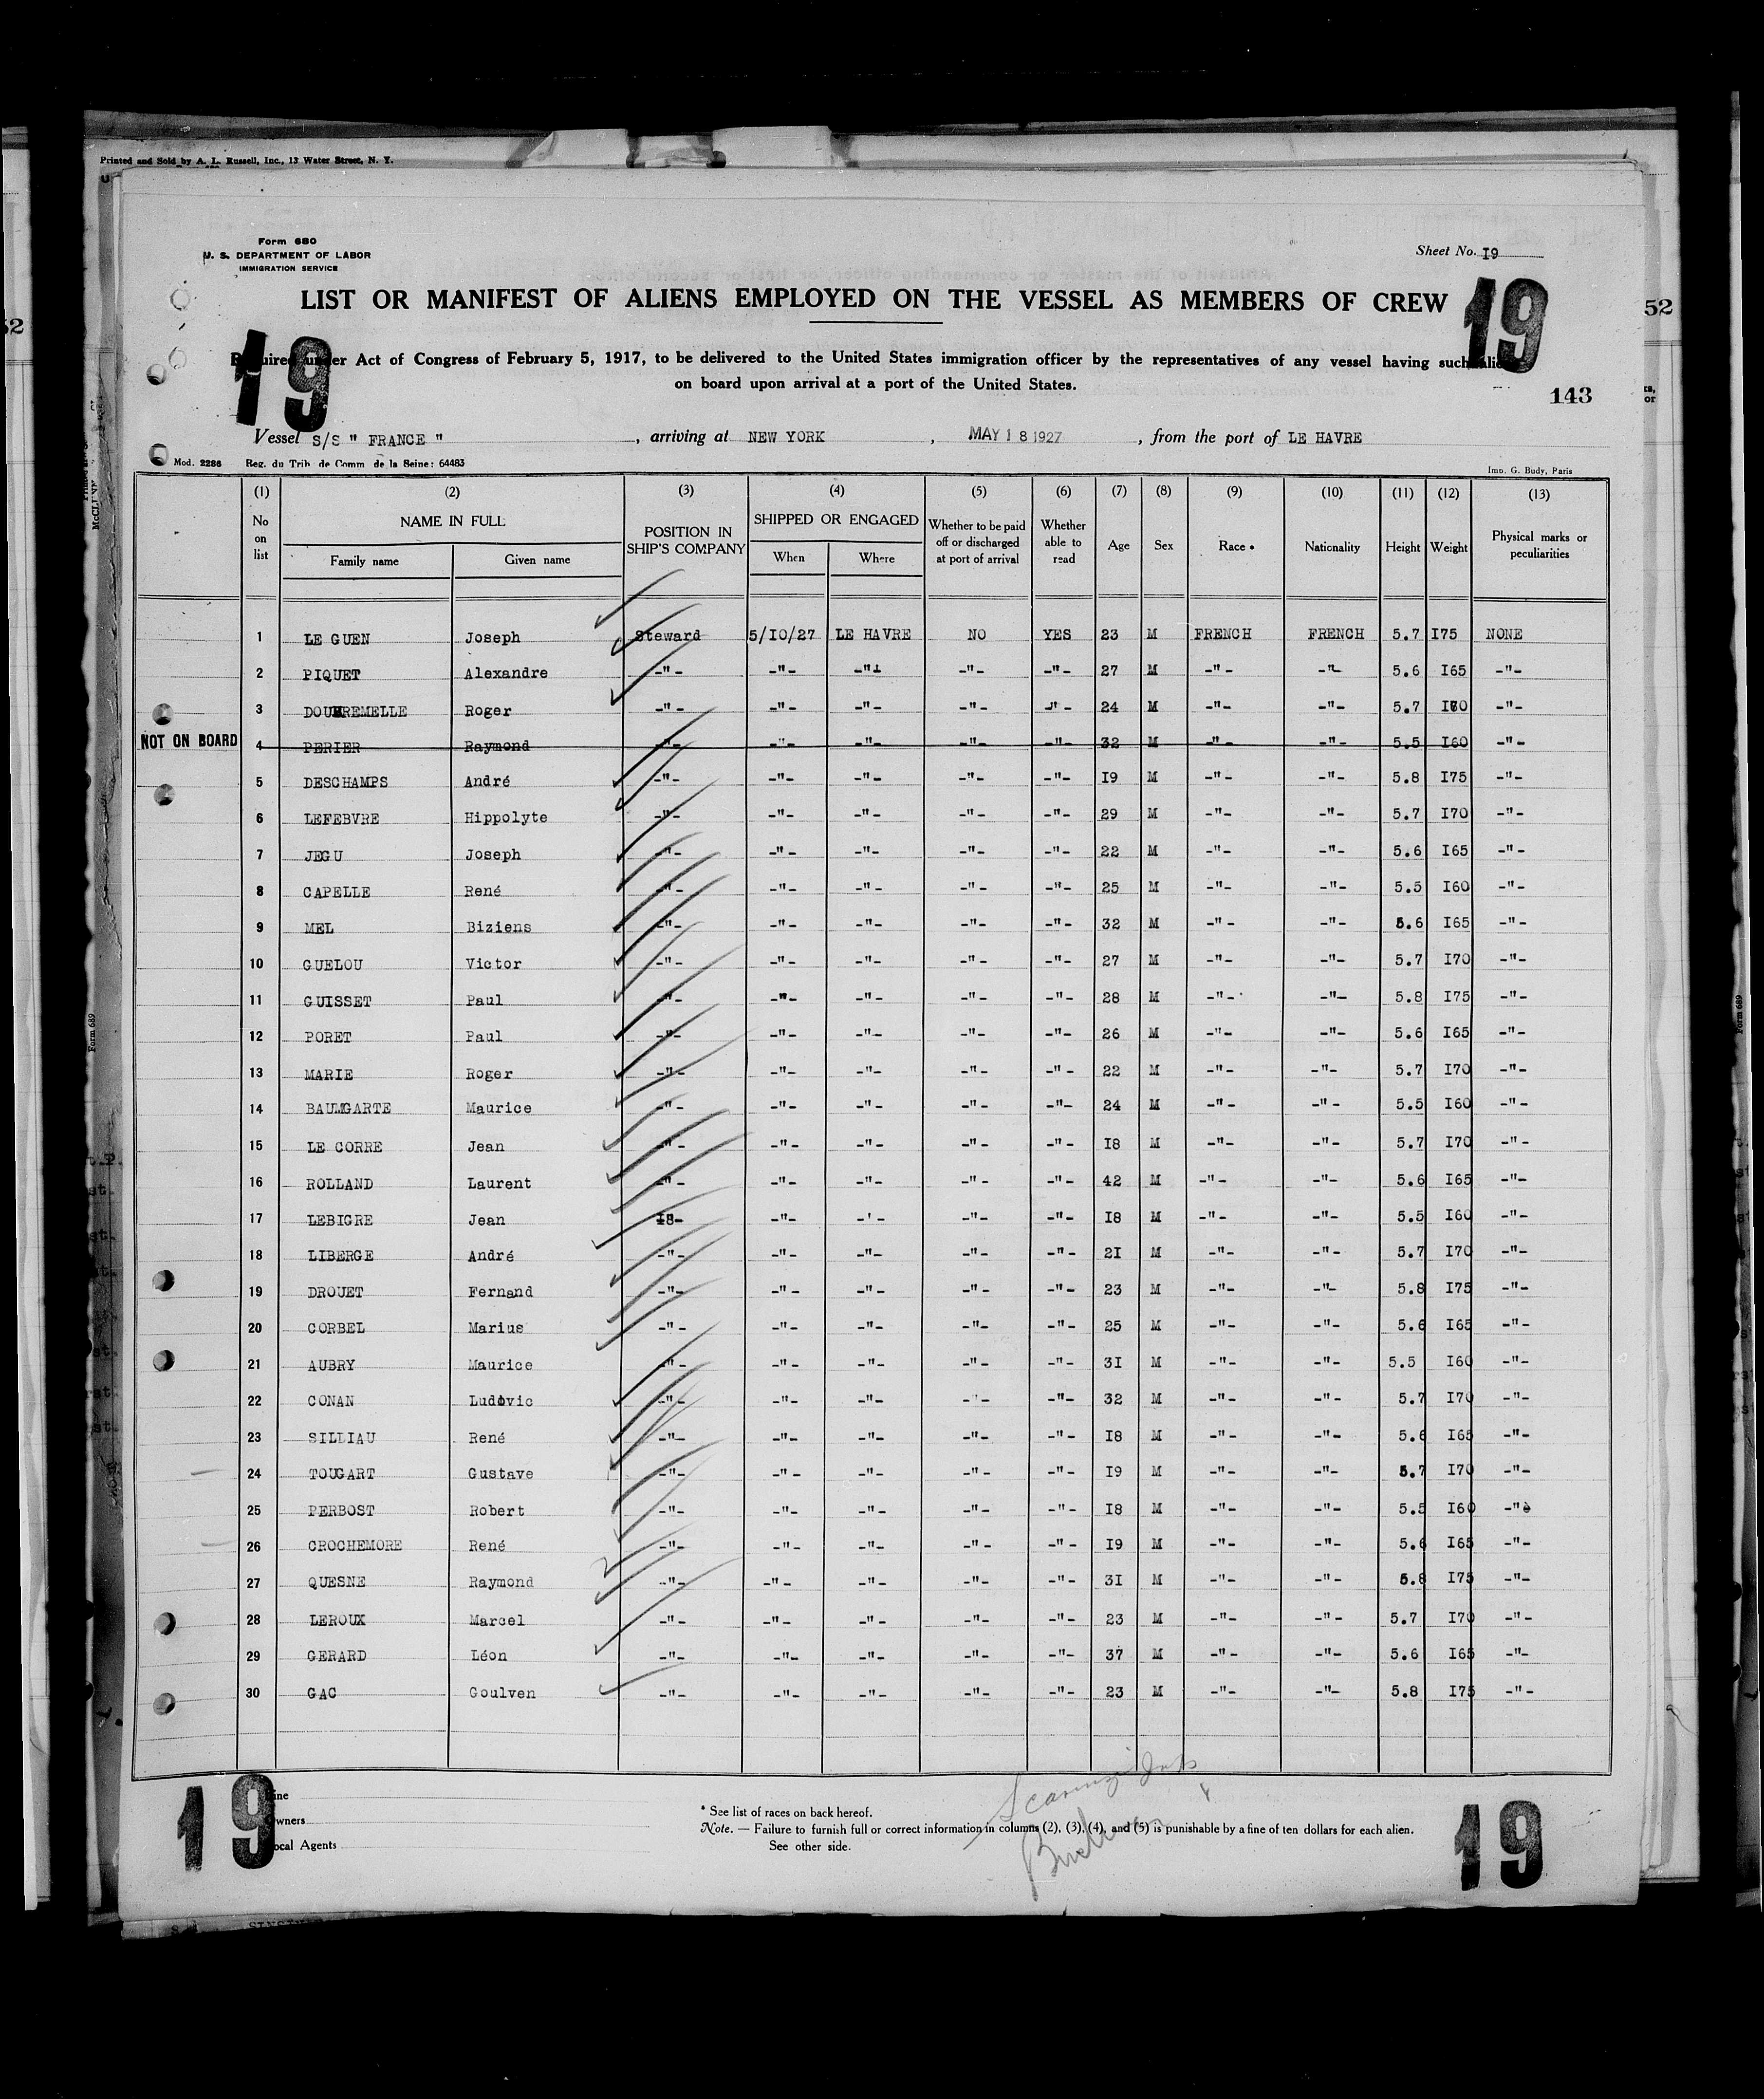 Printed and Sold by A. L. Russell, Inc., 13 Water Street, N. Y.
Form 680
U. S. DEPARTMENT OF LABOR
IMMIGRATION SERVICE
Sheet No. I9
LIST OR MANIFEST OF ALIENS EMPLOYED ON THE VESSEL AS MEMBERS OF CREW
19
19
Required under Act of Congress of February 5, 1917, to be delivered to the United States immigration officer by the representatives of any vessel having such alie
on board upon arrival at a port of the United States.
143
52
52
Vessel S/S " FRANCE " , arriving at NEW YORK , MAY 18 1927 , from the port of LE HAVRE
Mod. 2286 Reg. du Trib. de Comm de la Seine: 64483
Imp. G. Budy, Paris
(1) (2) (3) (4) (5) (6) (7) (8) (9) (10) (11) (12) (13)
No on list NAME IN FULL POSITION IN SHIP'S COMPANY SHIPPED OR ENGAGED Whether to be paid off or discharged at port of arrival Whether able to read Age Sex Race * Nationality Height Weight Physical marks or peculiarities
Family name Given name When Where
1 LE GUEN Joseph Steward 5/IO/27 LE HAVRE NO YES 23 M FRENCH FRENCH 5.7 I75 NONE
2 PIQUET Alexandre -"- -"- -"- -"- -"- 27 M -"- -"- 5.6 I65 -"-
3 DOUHREMELLE Roger -"- -"- -"- -"- -"- 24 M -"- -"- 5.7 -"-
NOT ON BOARD 4 PERIER Raymond -"- -"- -"- -"- -"- 32 M -"- -"- 5.5 I60 -"-
5 DESCHAMPS André -"- -"- -"- -"- -"- I9 M -"- -"- 5.8 I75 -"-
6 LEFEBVRE Hippolyte -"- -"- -"- -"- -"- 29 M -"- -"- 5.7 I70 -"-
7 JEGU Joseph -"- -"- -"- -"- -"- 22 M -"- -"- 5.6 I65 -"-
8 CAPELLE René -"- -"- -"- -"- -"- 25 M -"- -"- 5.5 I60 -"-
9 MEL Biziens -"- -"- -"- -"- -"- 32 M -"- -"- 5.6 I65 -"-
10 GUELOU Victor -"- -"- -"- -"- -"- 27 M -"- -"- 5.7 I70 -"-
11 GUISSET Paul -"- -"- -"- -"- -"- 28 M -"- -"- 5.8 I75 -"-
12 PORET Paul -"- -"- -"- -"- -"- 26 M -"- -"- 5.6 I65 -"-
13 MARIE Roger -"- -"- -"- -"- -"- 22 M -"- -"- 5.7 I70 -"-
14 BAUMGARTE Maurice -"- -"- -"- -"- -"- 24 M -"- -"- 5.5 I60 -"-
15 LE CORRE Jean -"- -"- -"- -"- -"- I8 M -"- -"- 5.7 I70 -"-
16 ROLLAND Laurent -"- -"- -"- -"- -"- 42 M -"- -"- 5.6 I65 -"-
17 LEBIGRE Jean I8- -"- -'- -"- -"- I8 M -"- -"- 5.5 I60 -"-
18 LIBERGE André -"- -"- -"- -"- -"- 2I M -"- -"- 5.7 I70 -"-
19 DROUET Fernand -"- -"- -"- -"- -"- 23 M -"- -"- 5.8 I75 -"-
20 CORBEL Marius -"- -"- -"- -"- -"- 25 M -"- -"- 5.6 I65 -"-
21 AUBRY Maurice -"- -"- -"- -"- -"- 3I M -"- -"- 5.5 I60 -"-
22 CONAN Ludovic -"- -"- -"- -"- -"- 32 M -"- -"- 5.7 I70 -"-
23 SILLIAU René -"- -"- -"- -"- -"- I8 M -"- -"- 5.6 I65 -"-
24 TOUGART Gustave -"- -"- -"- -"- -"- I9 M -"- -"- 5.7 I70 -"-
25 PERBOST Robert -"- -"- -"- -"- -"- I8 M -"- -"- 5.5 I60 -"-
26 CROCHEMORE René -"- -"- -"- -"- -"- I9 M -"- -"- 5.6 I65 -"-
27 QUESNE Raymond -"- -"- -"- -"- -"- 3I M -"- -"- 5.8 I75 -"-
28 LEROUX Marcel -"- -"- -"- -"- -"- 23 M -"- -"- 5.7 I70 -"-
29 GERARD Léon -"- -"- -"- -"- -"- 37 M -"- -"- 5.6 I65 -"-
30 GAC Goulven -"- -"- -"- -"- -"- 23 M -"- -"- 5.8 I75 -"-
19
19
Line
Owners
Local Agents
* See list of races on back hereof.
Note. — Failure to furnish full or correct information in columns (2), (3), (4), and (5) is punishable by a fine of ten dollars for each alien.
See other side.
Form 689
Form 689